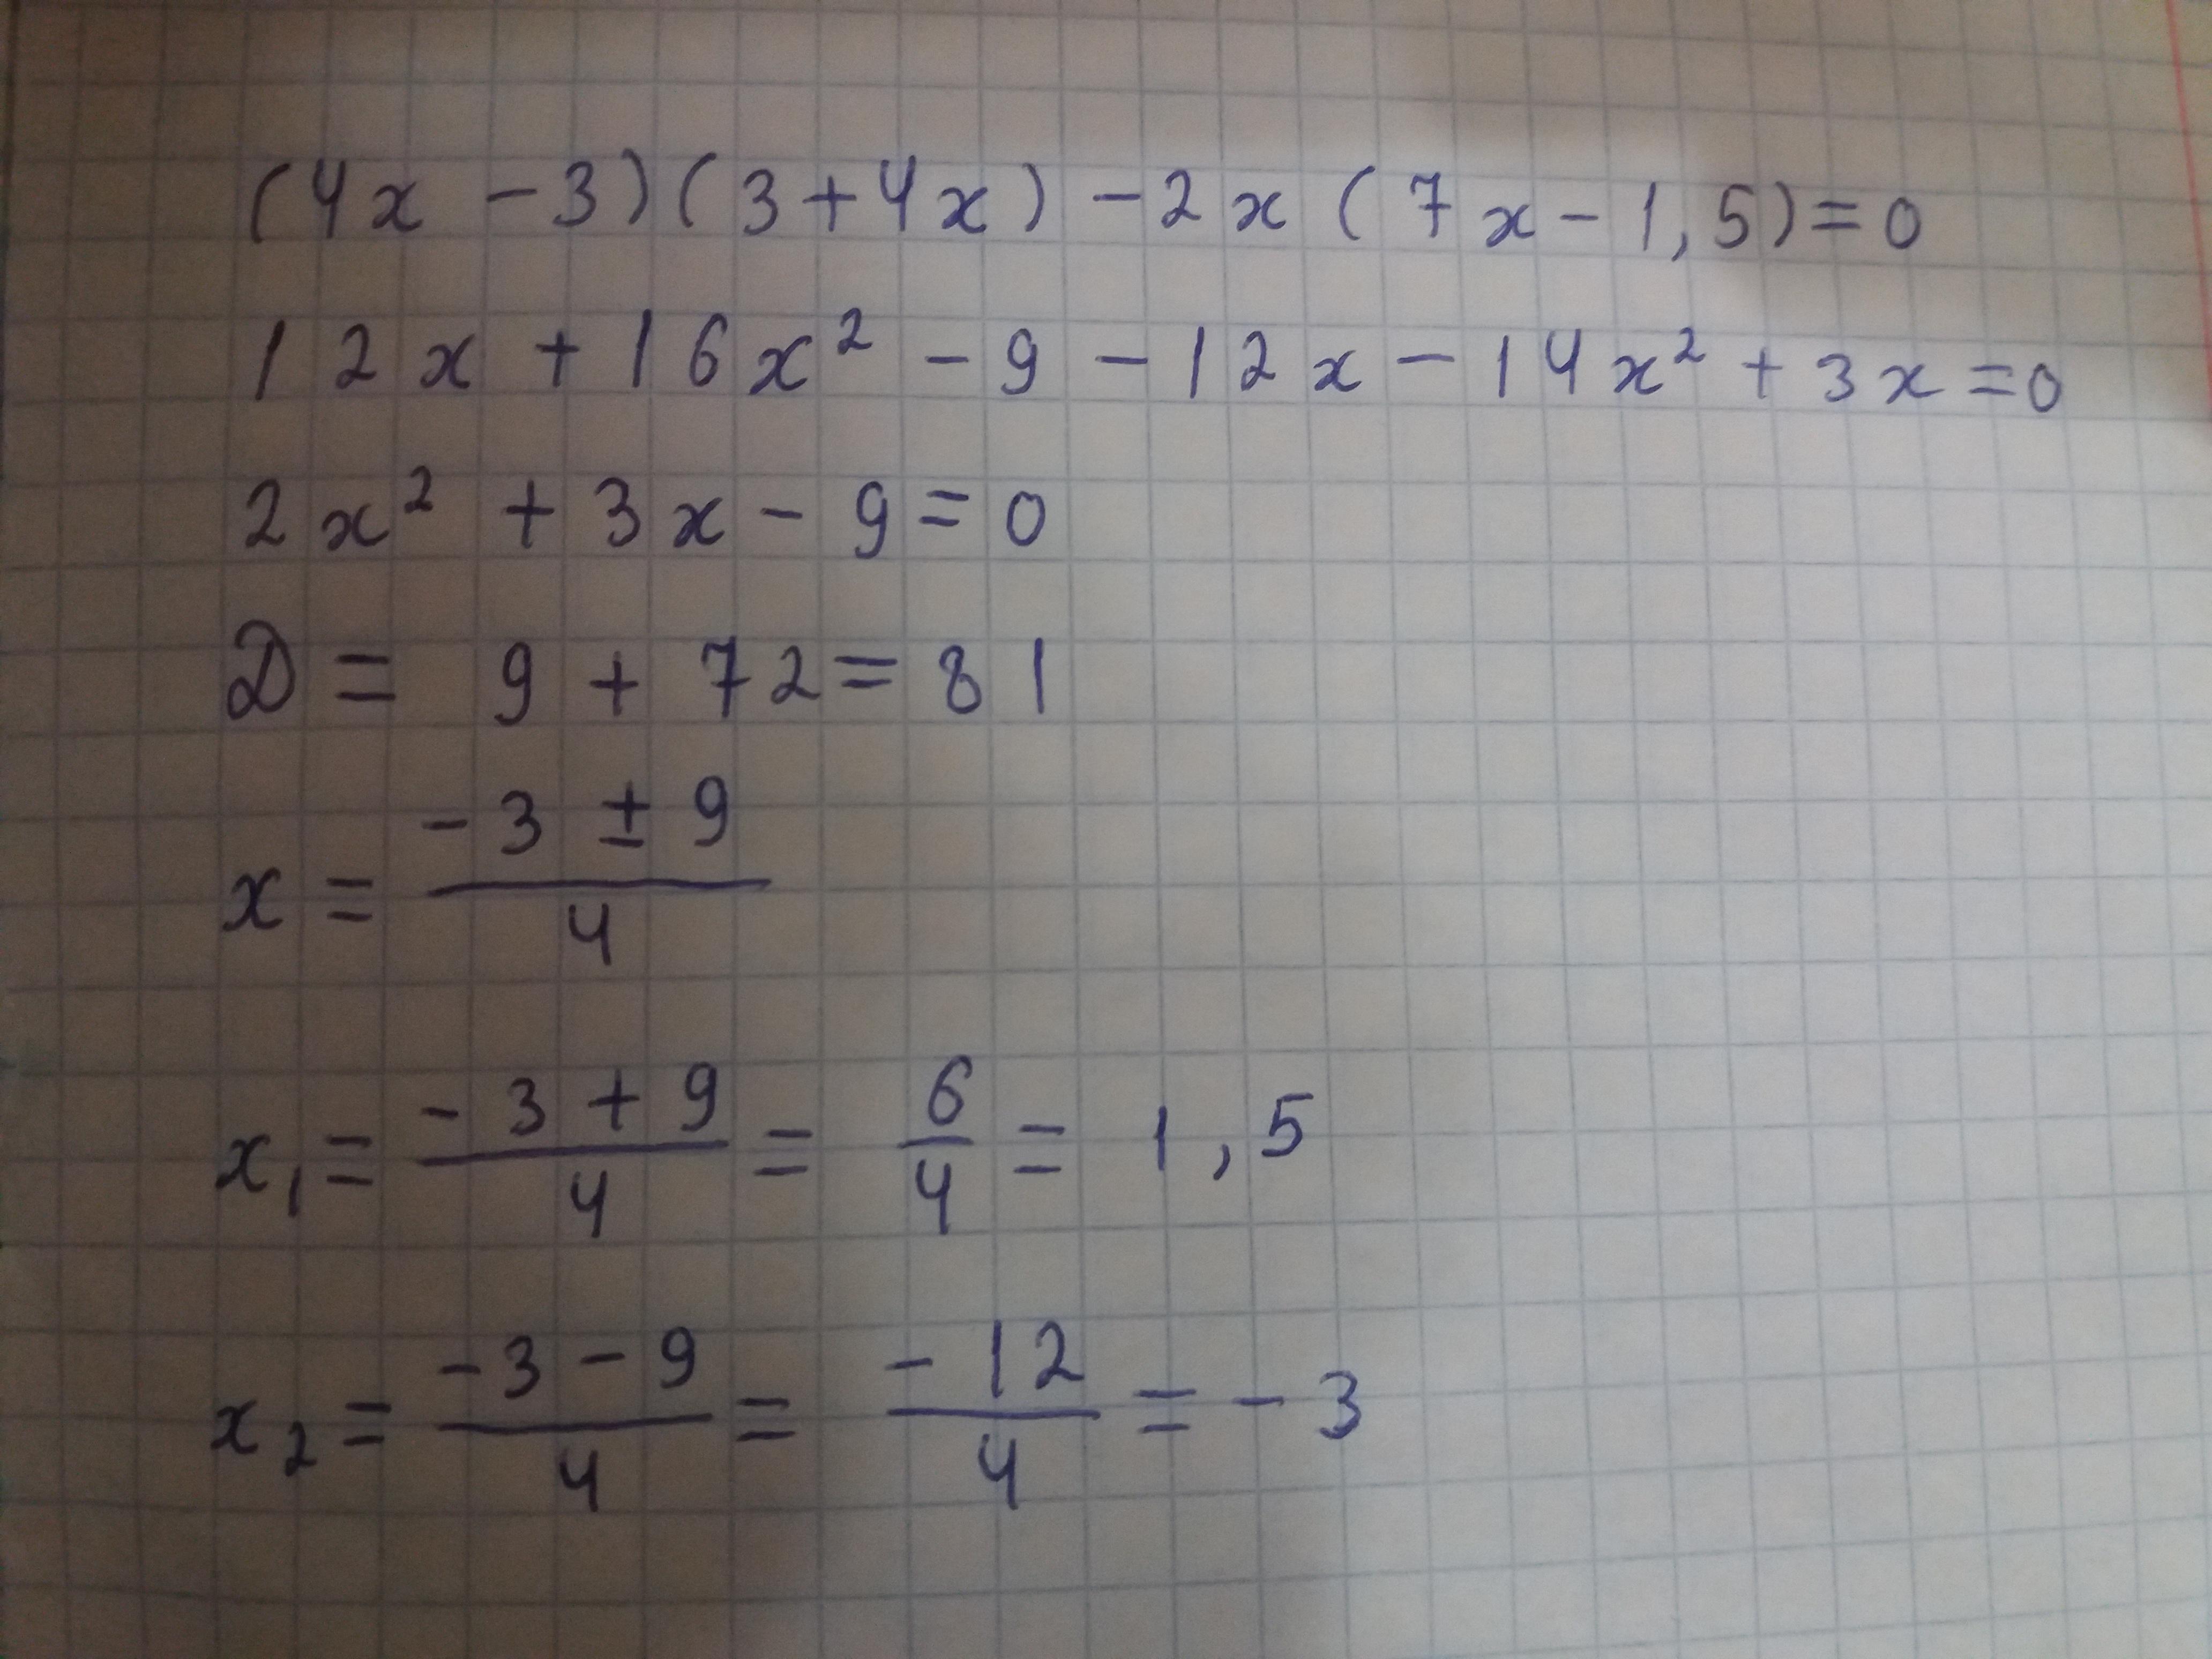 (4x - 3)(3 + 4x) - 2x(7x - 1,5) = 0
12x + 16x² - 9 - 12x - 14x² + 3x = 0
2x² + 3x - 9 = 0
D = 9 + 72 = 81
x = (-3 ± 9)/4
x₁ = (-3 + 9)/4 = 6/4 = 1,5
x₂ = (-3 - 9)/4 = -12/4 = -3